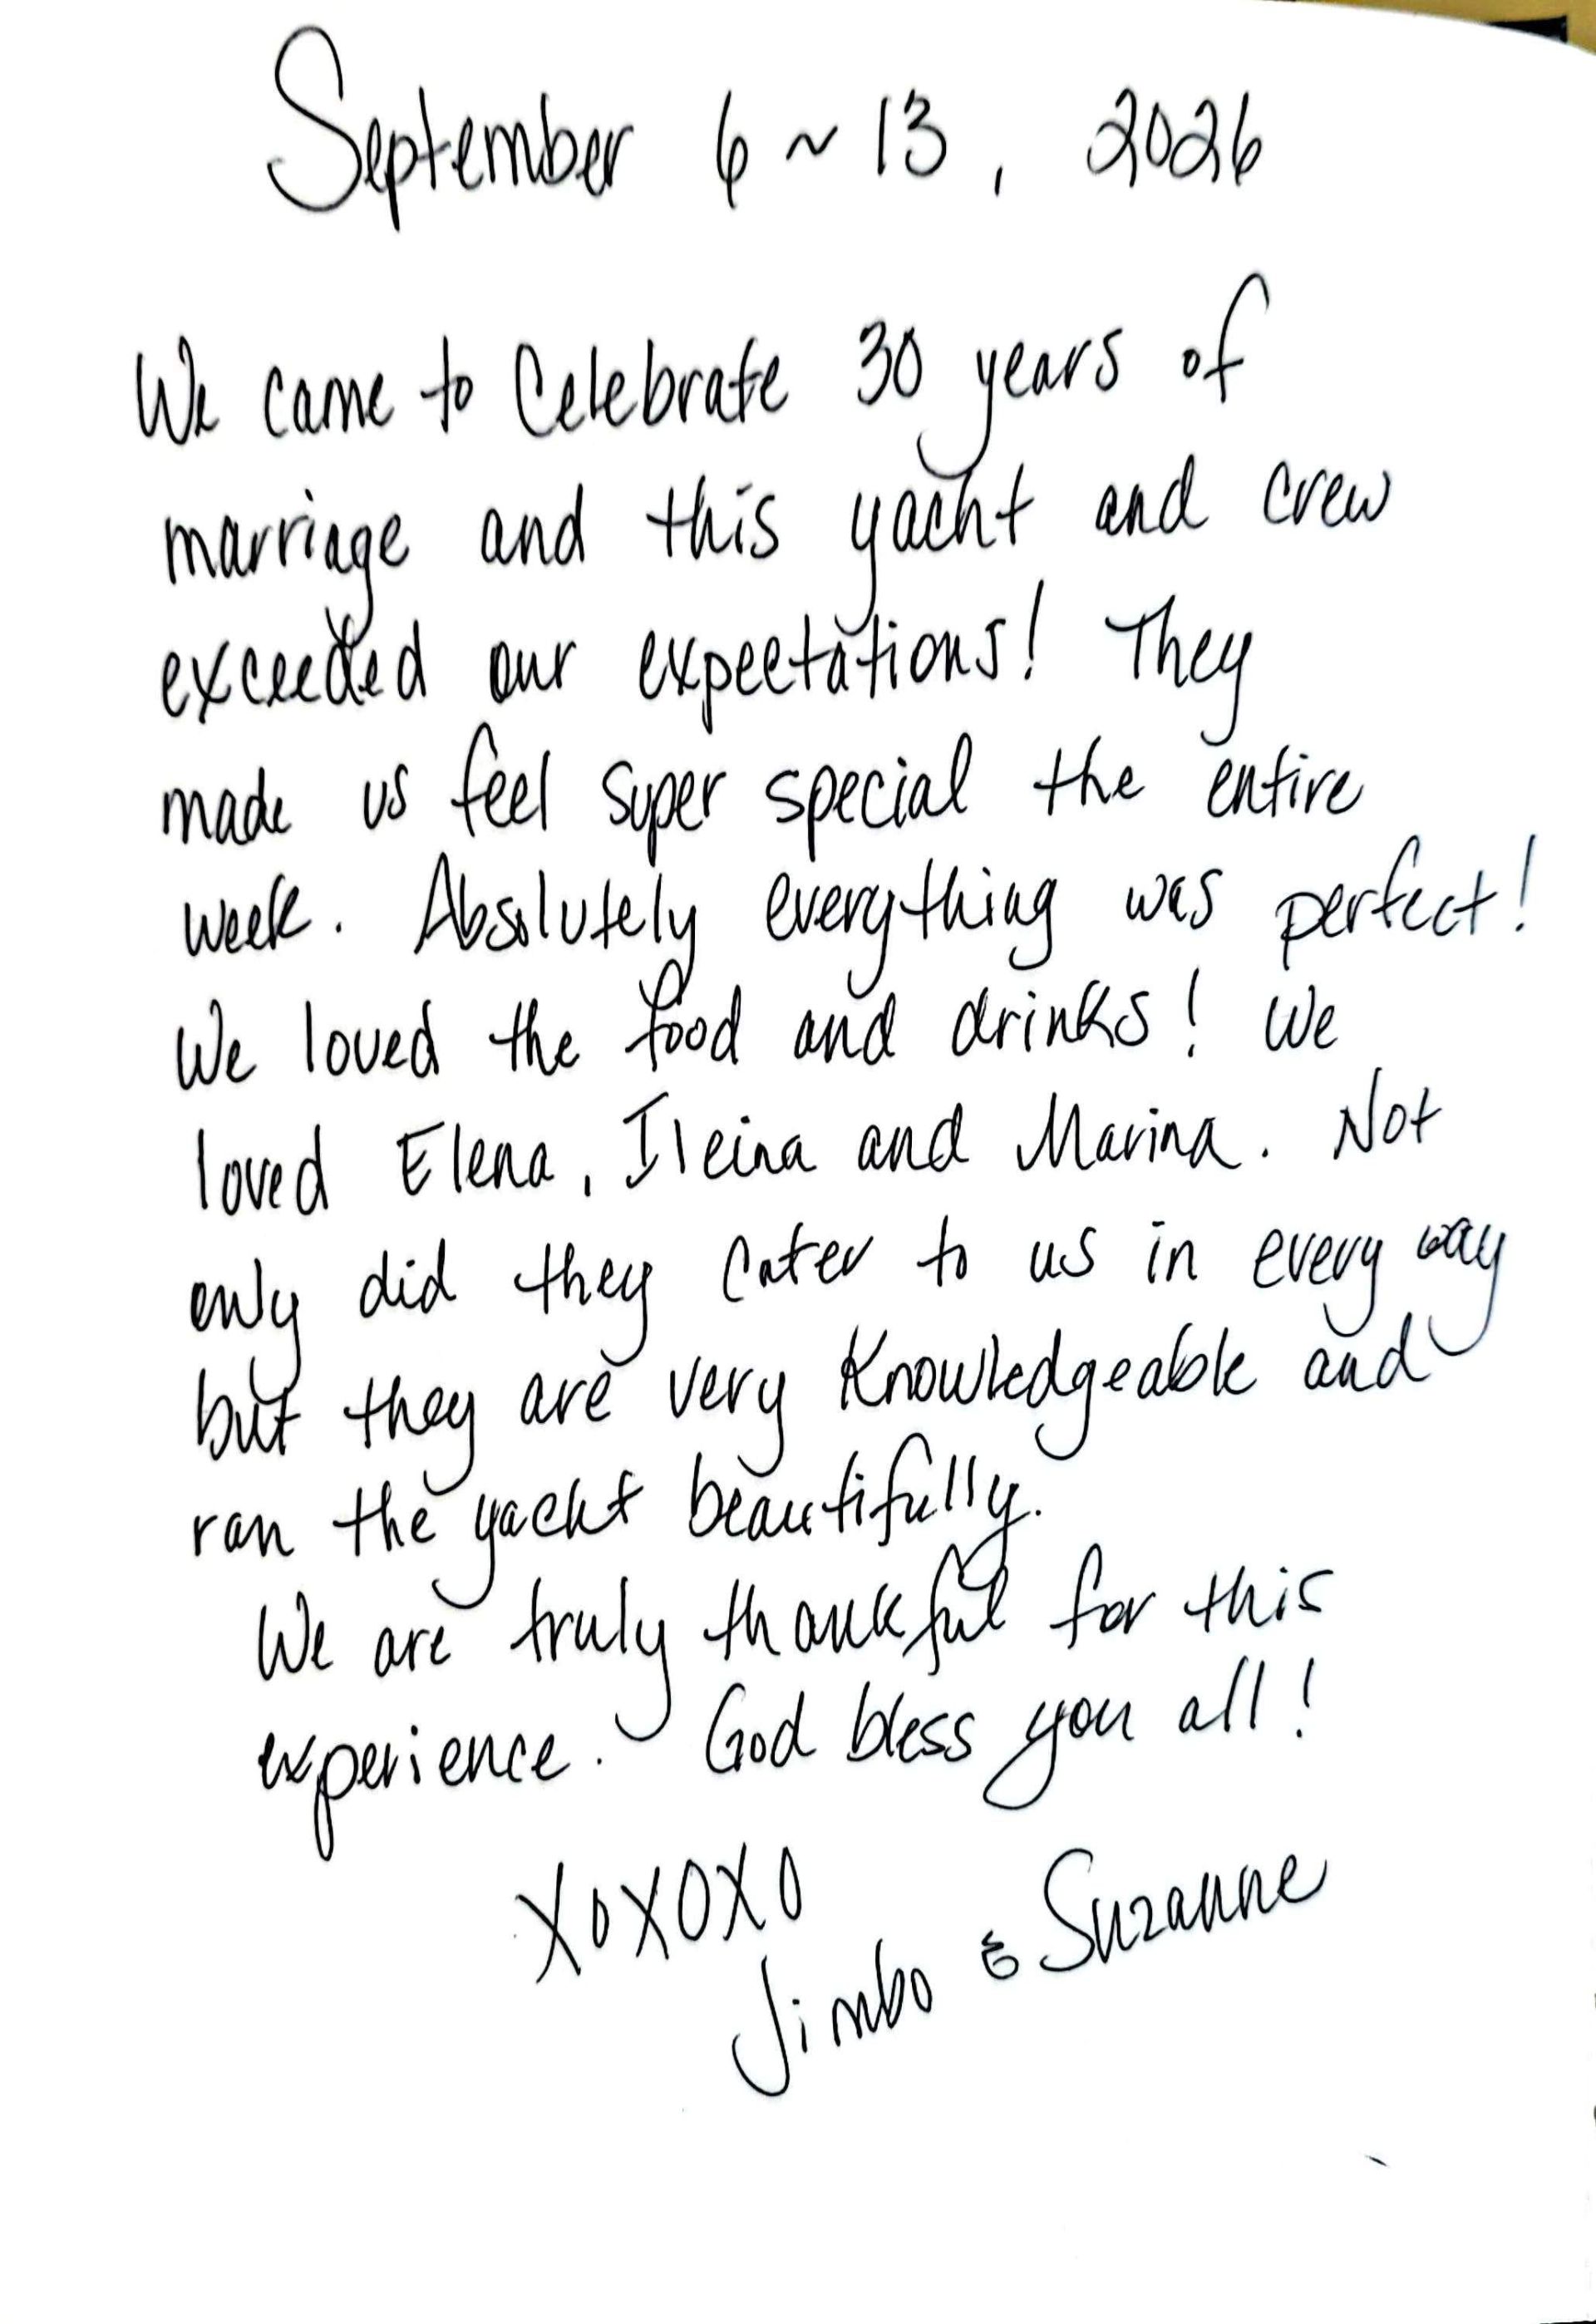 September 6 ~ 13, 2026
We came to Celebrate 30 years of
marriage and this yacht and crew
exceeded our expectations! They
made us feel super special the entire
week. Absolutely everything was perfect!
We loved the food and drinks! We
loved Elena, Ileina and Marina. Not
only did they cater to us in every way
but they are very knowledgeable and
ran the yacht beautifully.
We are truly thankful for this
experience. God bless you all!
XOXOXO
Jimbo & Suzanne